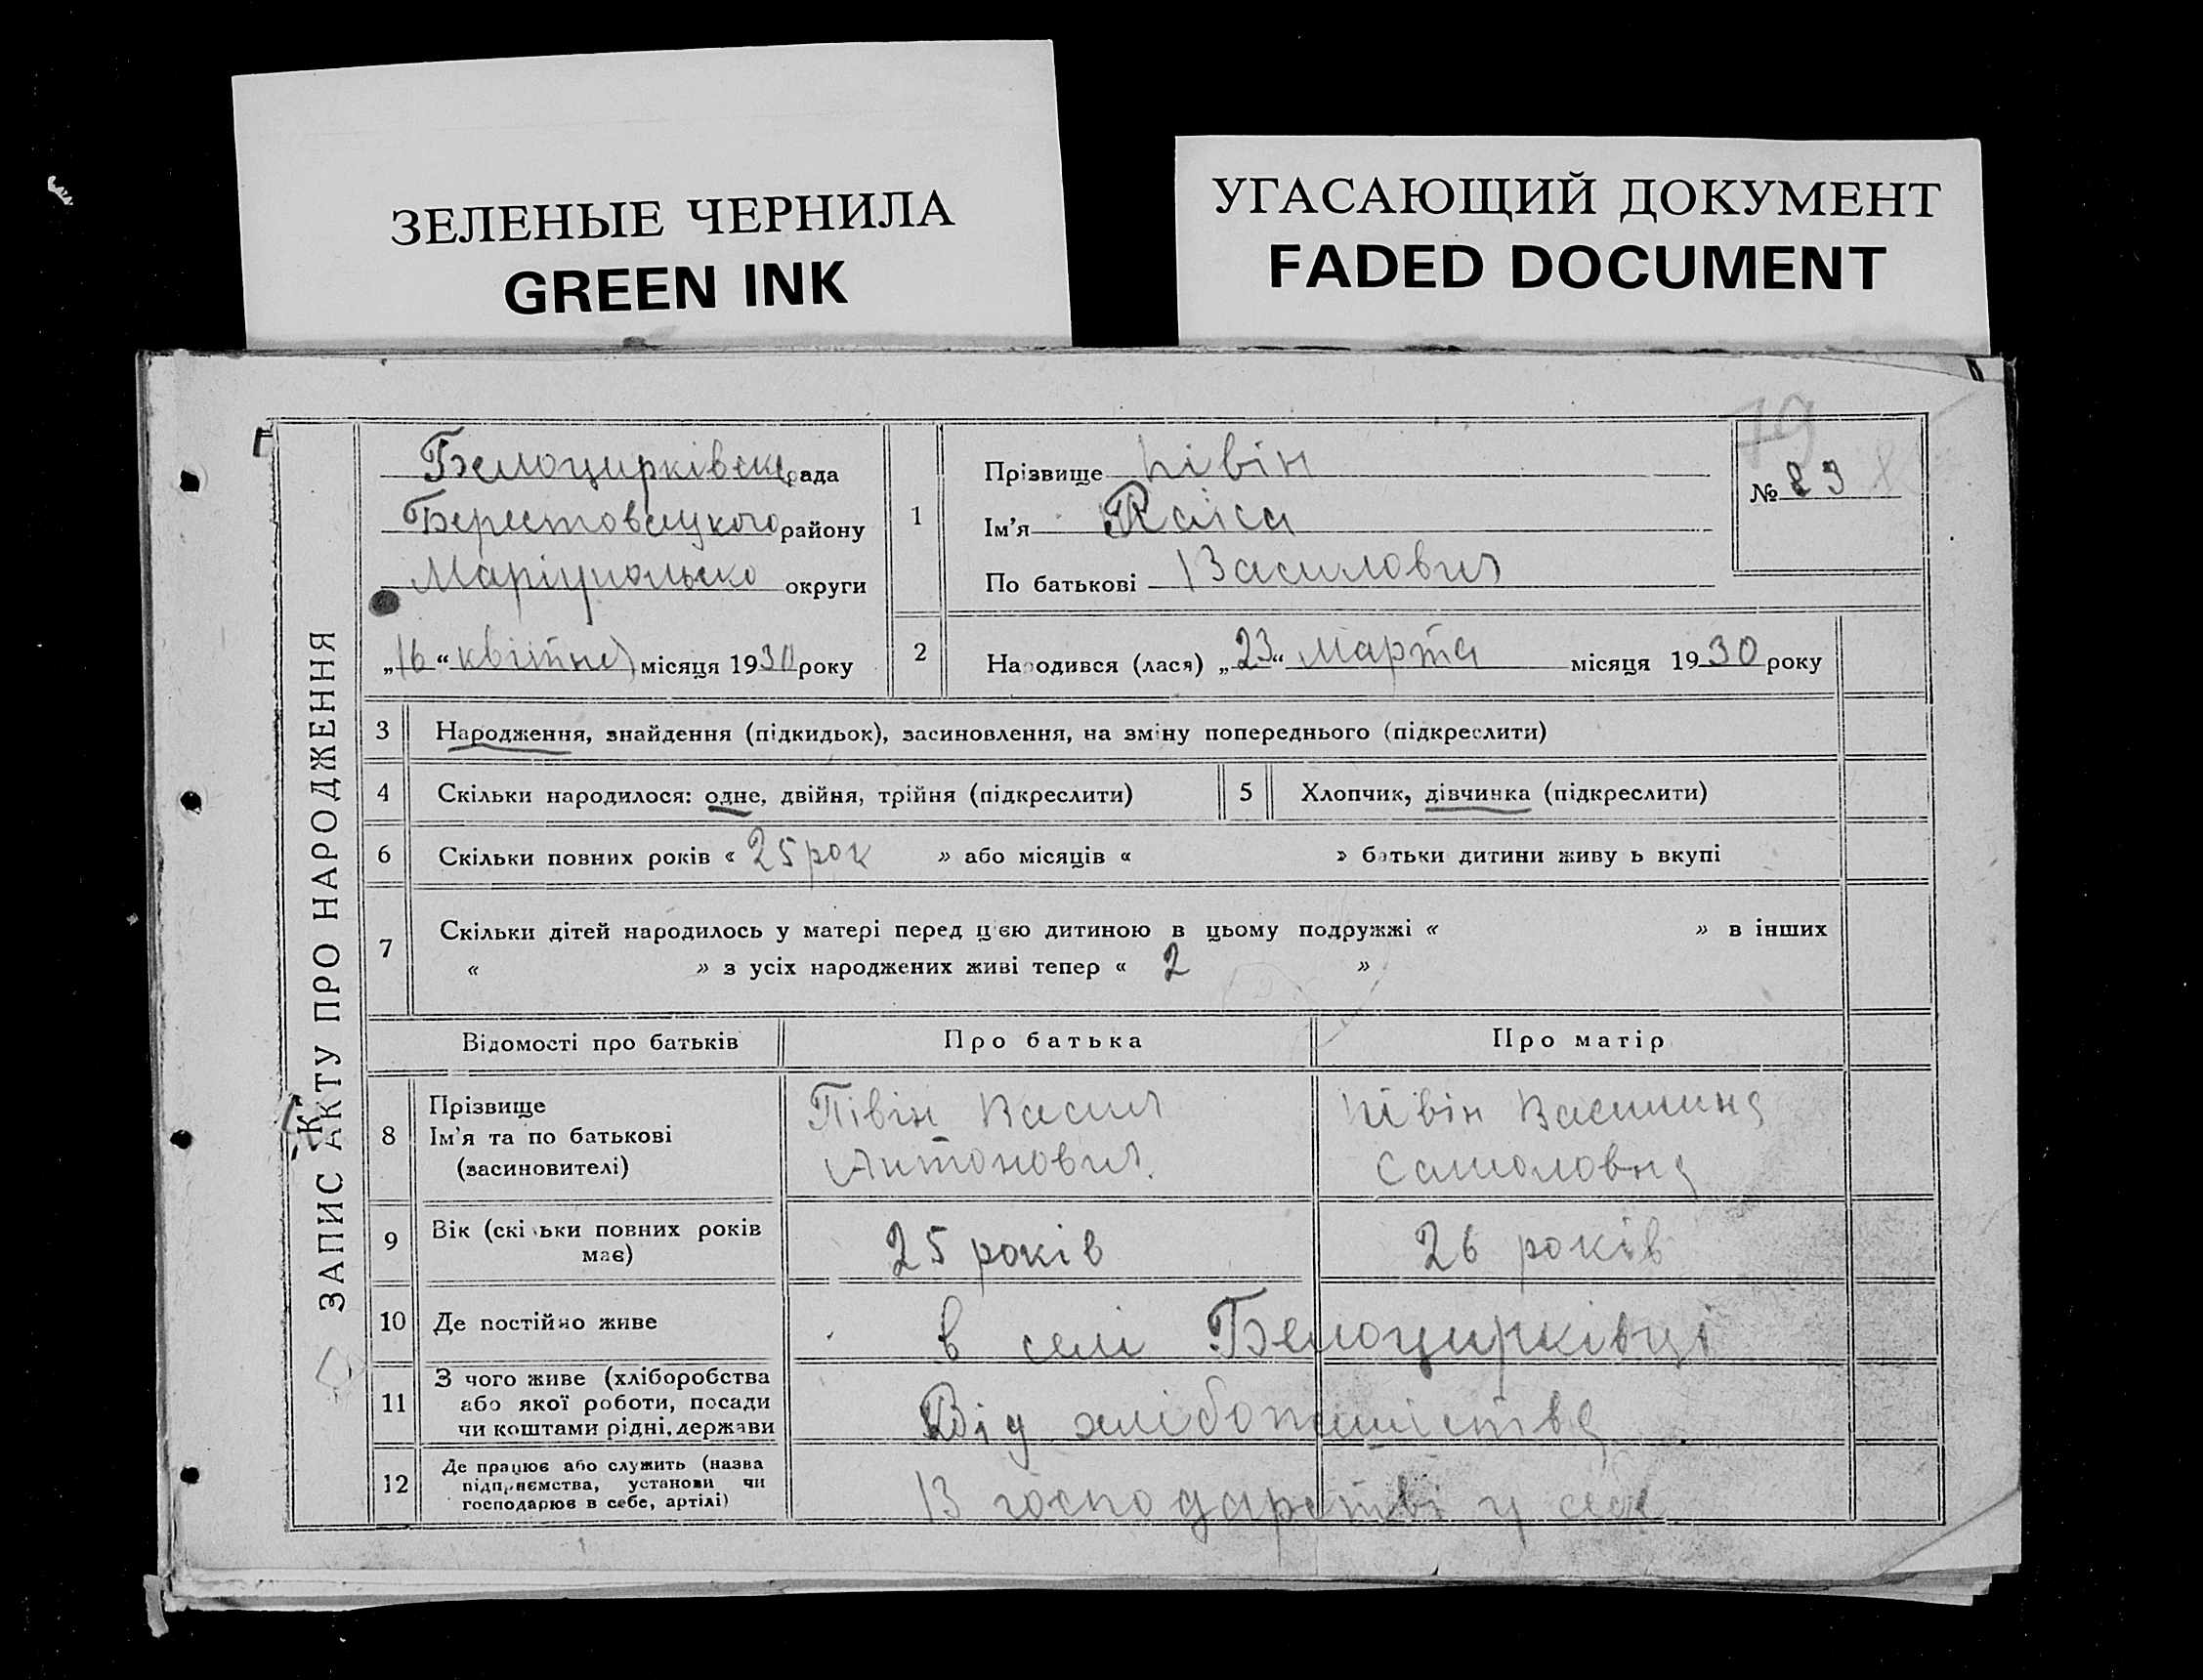 ЗЕЛЕНЫЕ ЧЕРНИЛА
GREEN INK
УГАСАЮЩИЙ ДОКУМЕНТ
FADED DOCUMENT
19
ЗАПИС АКТУ ПРО НАРОДЖЕННЯ
Белоцирківск рада
Берестовецького району
Маріупольско округи
„16“ квітня місяця 1930 року
1
Прізвище Півін
Ім'я Раіса
По батькові Василович
№ 23
2
Народився (лася) „23“ марта місяця 1930 року
3 Народження, знайдення (підкидьок), засиновлення, на зміну попереднього (підкреслити)
4 Скільки народилося: одне, двійня, трійня (підкреслити)
5 Хлопчик, дівчинка (підкреслити)
6 Скільки повних років « 25 рок » або місяців « » батьки дитини живу ь вкупі
7 Скільки дітей народилось у матері перед цею дитиною в цьому подружжі « » в інших
« » з усіх народжених живі тепер « 2 »
Відомості про батьків Про батька Про матір
8
Прізвище
Ім'я та по батькові
(засиновителі)
Півін Васил
Антонович.
Півін
9
Вік (скільки повних років
має)
25 років
26 років
10 Де постійно живе
в селі Белоцирківці
11
З чого живе (хліборобства
або якої роботи, посади
чи коштами рідні, держави
Від хлібопашіства
12
Де працює або служить (назва
підприємства, установи чи
господарює в себе, артілі)
В господарстві у себе